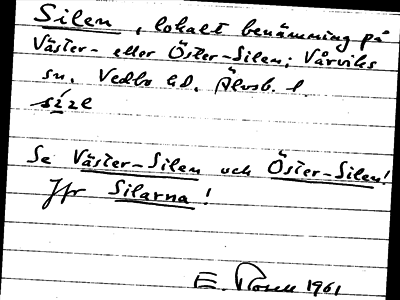 Silen, lokalt benämning på
Väster- eller Öster-Silen; Vårviks
sn. Vedbo hd. Älvsb. l.
Se Väster-Silen och Öster-Silen!
Jfr Silarna!
E. Rosell 1961